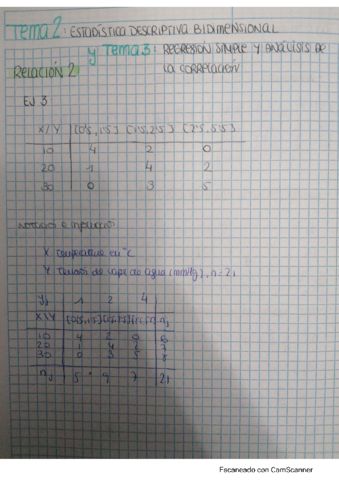 Tema 2: ESTADÍSTICA DESCRIPTIVA BIDIMENSIONAL
y Tema 3: REGRESIÓN SIMPLE Y ANÁLISIS DE
LA CORRELACIÓN
RELACIÓN 2
EJ 3
X/Y (0'5,1'5] (1'5,2'5] (2'5,5'5]
10 4 2 0
20 1 4 2
30 0 3 5
X temperatura en °C
Y de vapor de agua (mmHg), n=21
yj 1 2 4
X\Y
10 4 2 0 6
20 1 4 2 7
30 0 3 5 8
nj 5 9 7 21
Escaneado con CamScanner